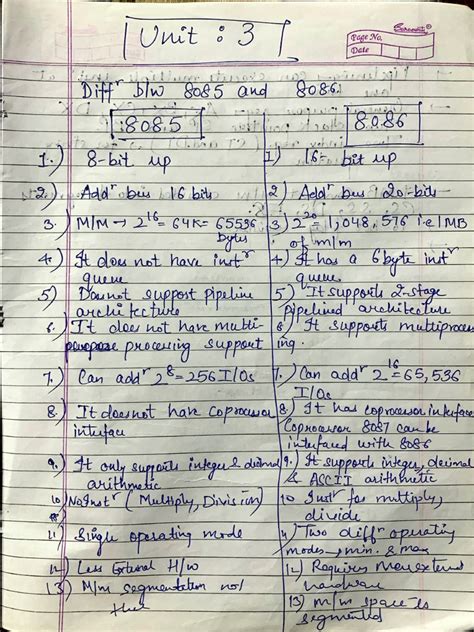 Unit : 3
Saraswati
Page No.
Date
Diffr b/w 8085 and 8086.
8085
8086
1.) 8-bit up
1) 16- bit up
2.) Addr bus 16 bits
2) Addr bus 20-bits
3.) M/M → 2^16 = 64K = 65536 bytes
3) 2^20 = 1,048,576 i.e 1MB of m/m
4.) It does not have instr
queue
4.) It has a 6 byte instr
queue
5) Doesnot support pipeline
architecture
5) It supports 2-stage
pipelined architecture
6. It does not have multi-
processing support
6) It supports multiprocess
ing.
7.) Can addr 2^8 = 256 I/Os
7.) Can addr 2^16 = 65,536
I/Os
8.) It doesnot have Coprocessor
interface
8) It has coprocessor interface
Coprocessor 8087 can be
interfaced with 8086
9.) It only supports integer & decimal
arithmetic
9.) It supports integer, decimal
& ASCII arithmetic
10) No Instr (Multiply, Division)
10 Instr for multiply,
divide
11) Single operating mode
11) Two diffr operating
modes → min. & max
12) Less External H/w
12) Requires More extern
hardware
13) M/m segmentation not
there
13) m/m space is
segmented